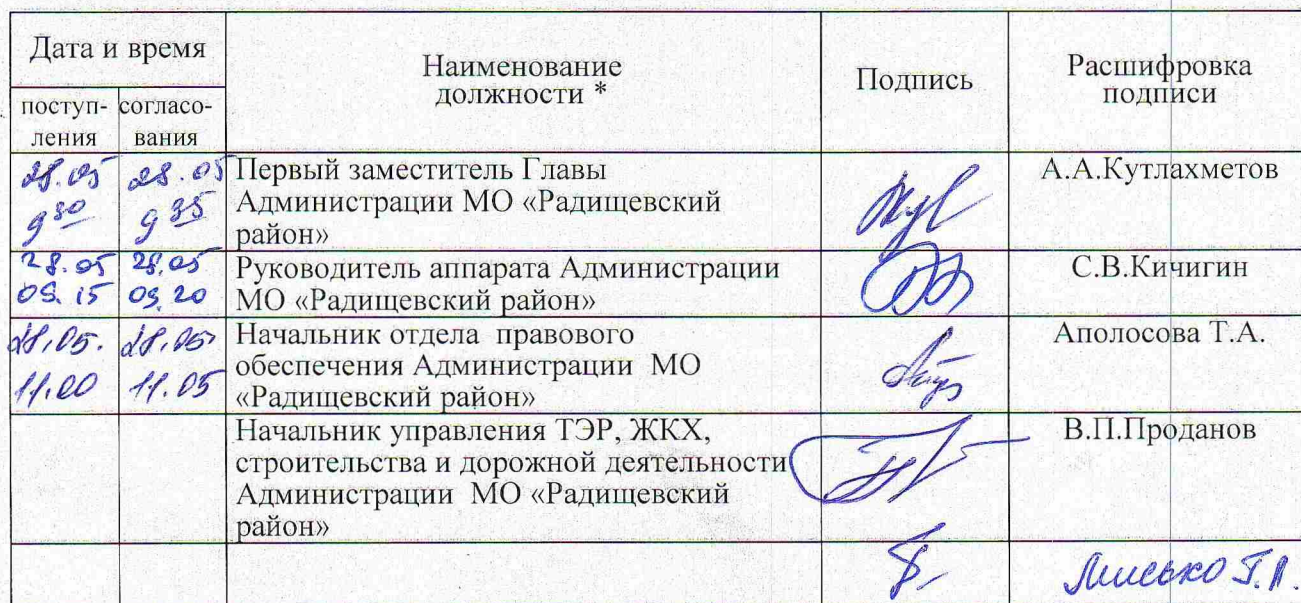 Дата и время
Наименование
должности *
Подпись
Расшифровка
подписи
поступ-
ления
согласо-
вания
28.05 28.05
9 30 9 35
Первый заместитель Главы
Администрации МО «Радищевский
район»
А.А.Кутлахметов
28.05 28.05
09.15 09.20
Руководитель аппарата Администрации
МО «Радищевский район»
С.В.Кичигин
28.05. 28.05
11.00 11.05
Начальник отдела правового
обеспечения Администрации МО
«Радищевский район»
Аполосова Т.А.
Начальник управления ТЭР, ЖКХ,
строительства и дорожной деятельности
Администрации МО «Радищевский
район»
В.П.Проданов